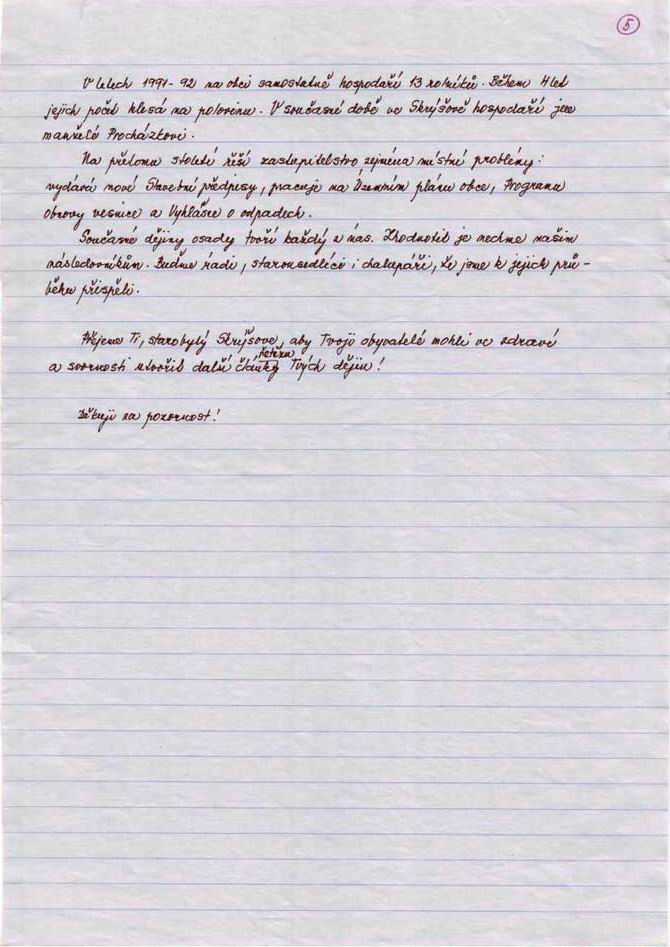 5
V letech 1991-92 na obci samostatně hospodaří 13 rolníků. Během 4 let
jejich počet klesá na polovinu. V současné době ve Skrýšově hospodaří jen
manželé Procházkovi.
Na přelomu století řeší zastupitelstvo zejména místní problémy:
vydává nové Stavební předpisy, pracuje na Územním plánu obce, Programu
obnovy vesnice a Vyhlášce o odpadech.
Současné dějiny osady tvoří každý z nás. Zhodnotit je nechme našim
následovníkům. Buďme rádi, starousedlíci i chalupáři, že jsme k jejich prů-
běhu přispěli.
Přejeme Ti, starobylý Skrýšove, aby Tvoji obyvatelé mohli ve zdraví
řetězu
a svornosti utvořit další články Tvých dějin!
Děkuji za pozornost!